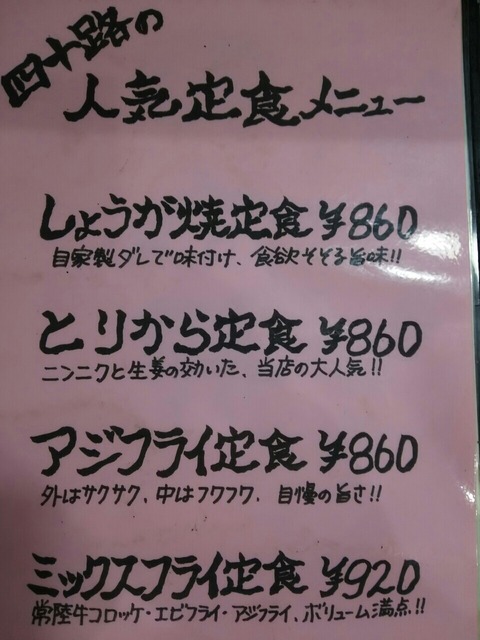 四十路の
人気定食メニュー
しょうが焼定食 ¥860
自家製ダレで味付け、食欲そそる旨味!!
とりから定食 ¥860
ニンニクと生姜の効いた、当店の大人気!!
アジフライ定食 ¥860
外はサクサク、中はフワフワ、自慢の旨さ!!
ミックスフライ定食 ¥920
常陸牛コロッケ・エビフライ・アジフライ、ボリューム満点!!